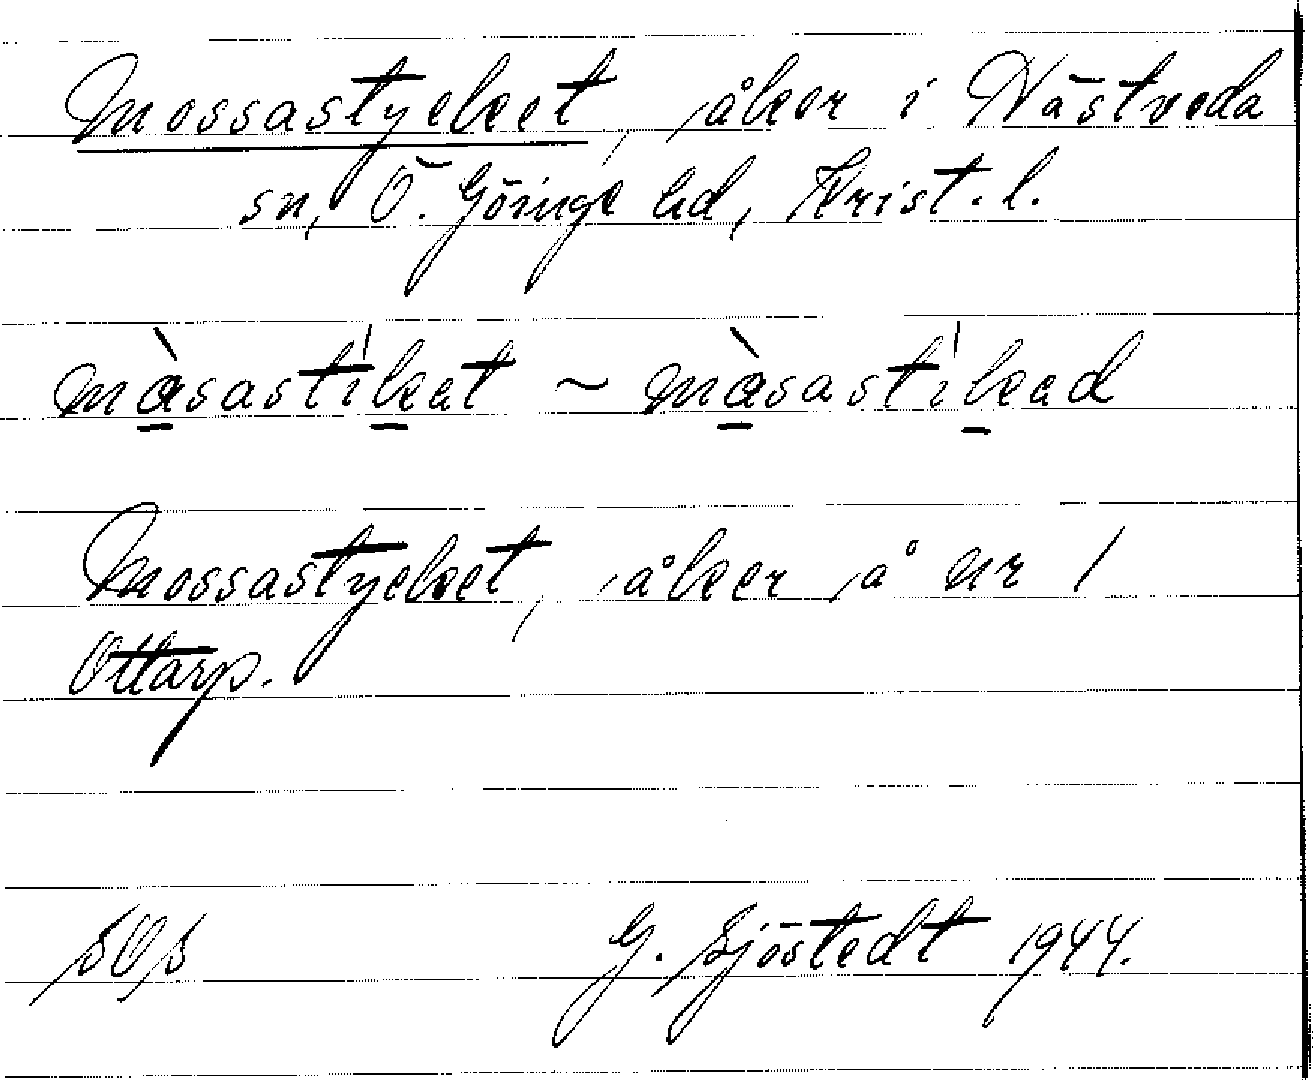 Mossastycket, åker i Nästveda
sn, Ö. Göinge hd, Krist. l.
màsastíkat ~ màsastíkad
Mossastycket, åker å nr 1
Ottarp.
G. Sjöstedt 1944.